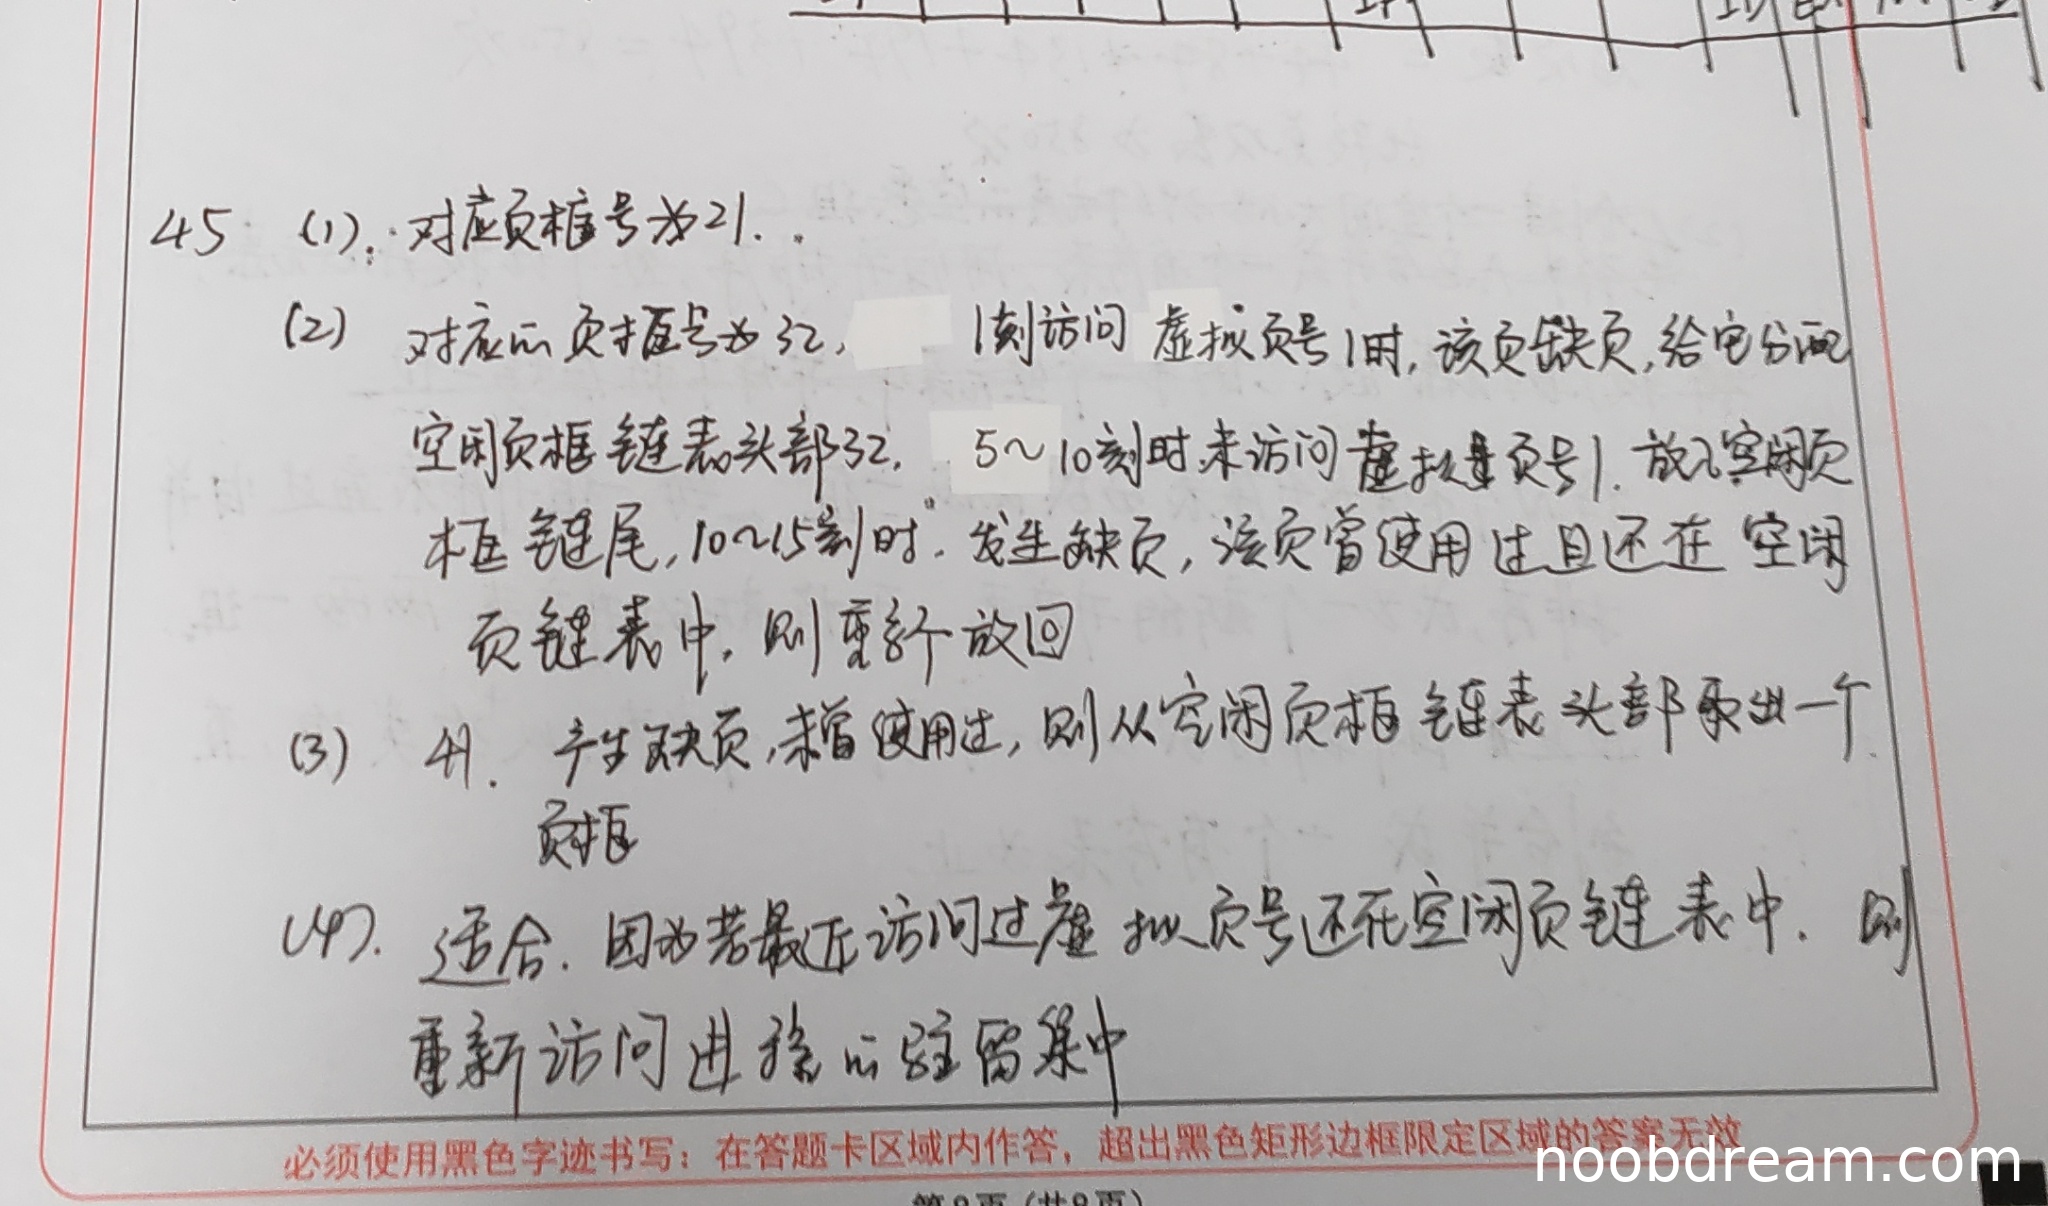 45 (1). 对应页框号为21.
(2) 对应的页框号为32, 1刻访问虚拟页号1时, 该页缺页, 给它分配
空闲页框链表头部32. 5~10刻时未访问虚拟页号1. 放入空闲页
框链尾, 10~15刻时. 发生缺页, 该页曾使用过且还在空闲
页链表中, 则重新放回
(3) 41. 产生缺页, 未曾使用过, 则从空闲页框链表头部取出一个
页框
(4). 适合. 因为若最近访问过虚拟页号还在空闲页链表中. 则
重新访问进程的驻留集中
必须使用黑色字迹书写：在答题卡区域内作答，超出黑色矩形边框限定区域的答案无效
noobdream.com
第8页 (共8页)